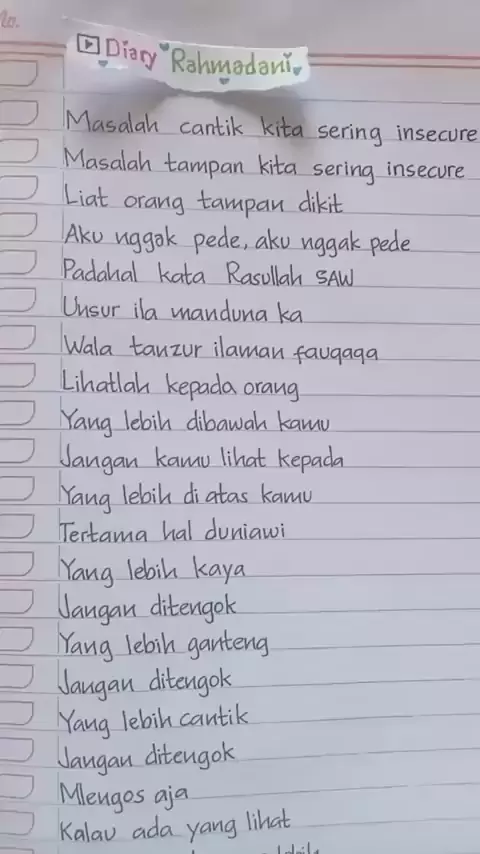 No.
Diary Rahmadani
Masalah cantik kita sering insecure
Masalah tampan kita sering insecure
Liat orang tampan dikit
Aku nggak pede, aku nggak pede
Padahal kata Rasullah SAW
Unsur ila manduna ka
Wala tanzur ilaman fauqaqa
Lihatlah kepada orang
Yang lebih dibawah kamu
Jangan kamu lihat kepada
Yang lebih di atas kamu
Tertama hal duniawi
Yang lebih kaya
Jangan ditengok
Yang lebih ganteng
Jangan ditengok
Yang lebih cantik
Jangan ditengok
Mlengos aja
Kalau ada yang lihat